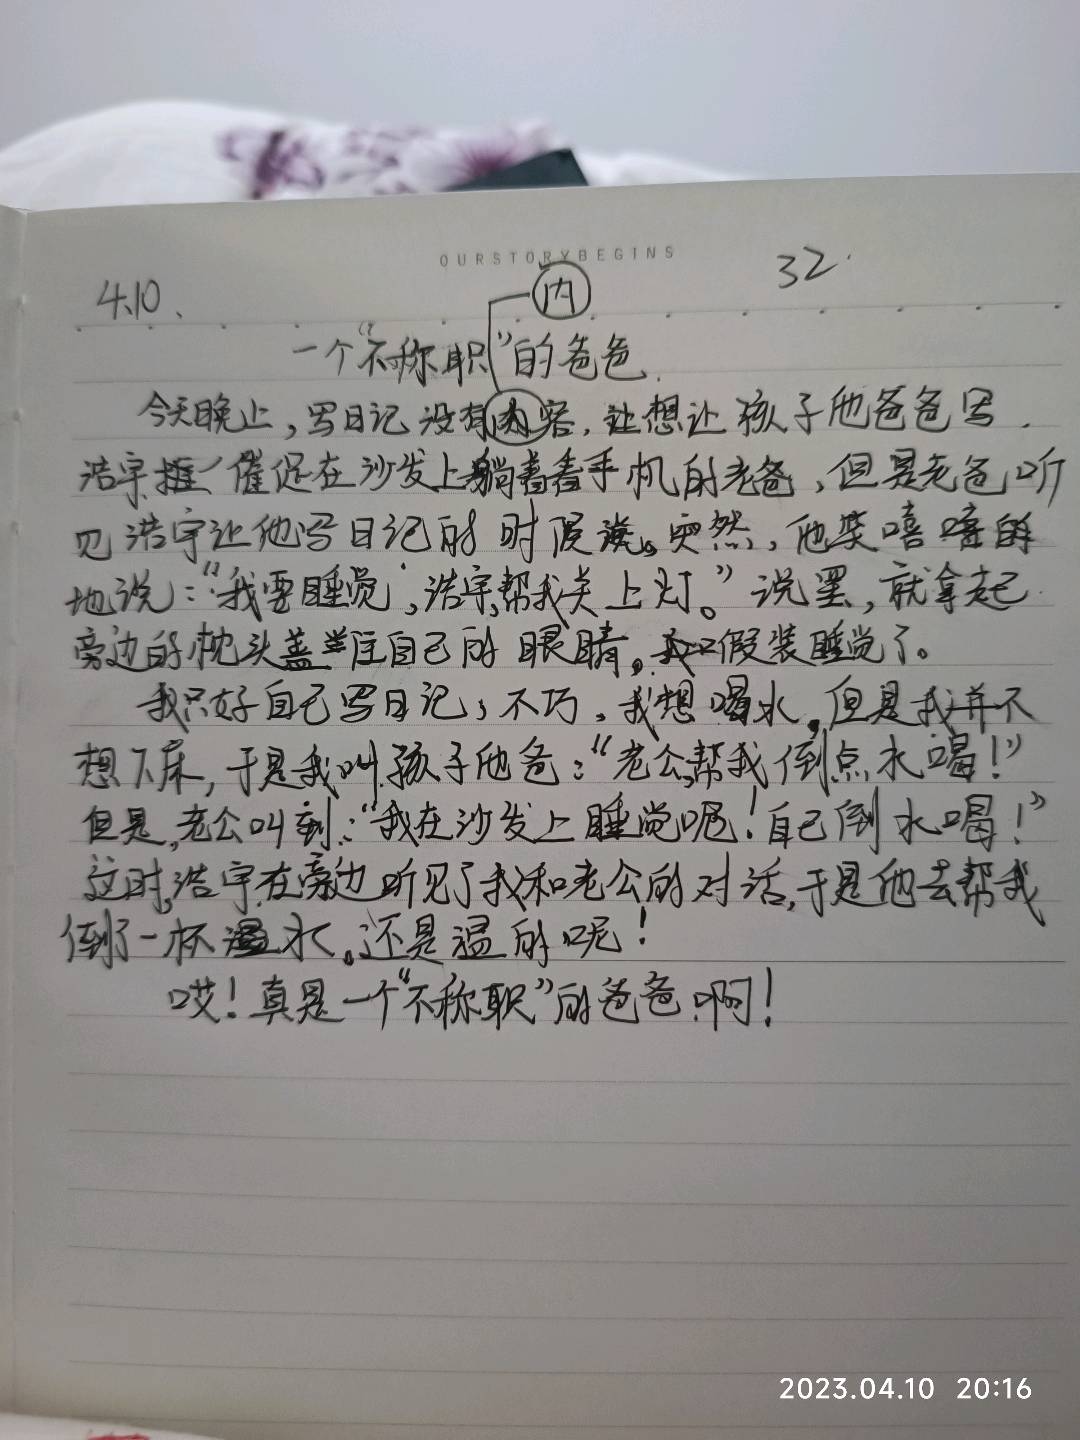 OURSTORYBEGINS
4.10.
32.
内
一个“不称职”的爸爸.
今天晚上,写日记没有内容,让想让孩子他爸爸写.
浩宇催促在沙发上躺着看手机的老爸,但是老爸听
见浩宇让他写日记的时候,突然,他笑嘻嘻的
地说:“我要睡觉,浩宇,帮我关上灯。”说罢,就拿起
旁边的枕头盖住自己的眼睛。假装睡觉了。
我只好自己写日记,不巧,我想喝水,但是我并不
想下床,于是我叫孩子他爸:“老公,帮我倒点水喝!”
但是,老公叫到:“我在沙发上睡觉呢!自己倒水喝!”
这时,浩宇在旁边听见了我和老公的对话,于是他去帮我
倒了一杯水。还是温的呢!
哎!真是一个“不称职”的爸爸啊!
2023.04.10 20:16